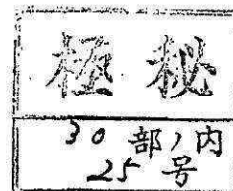 極秘
30部ノ内
25号